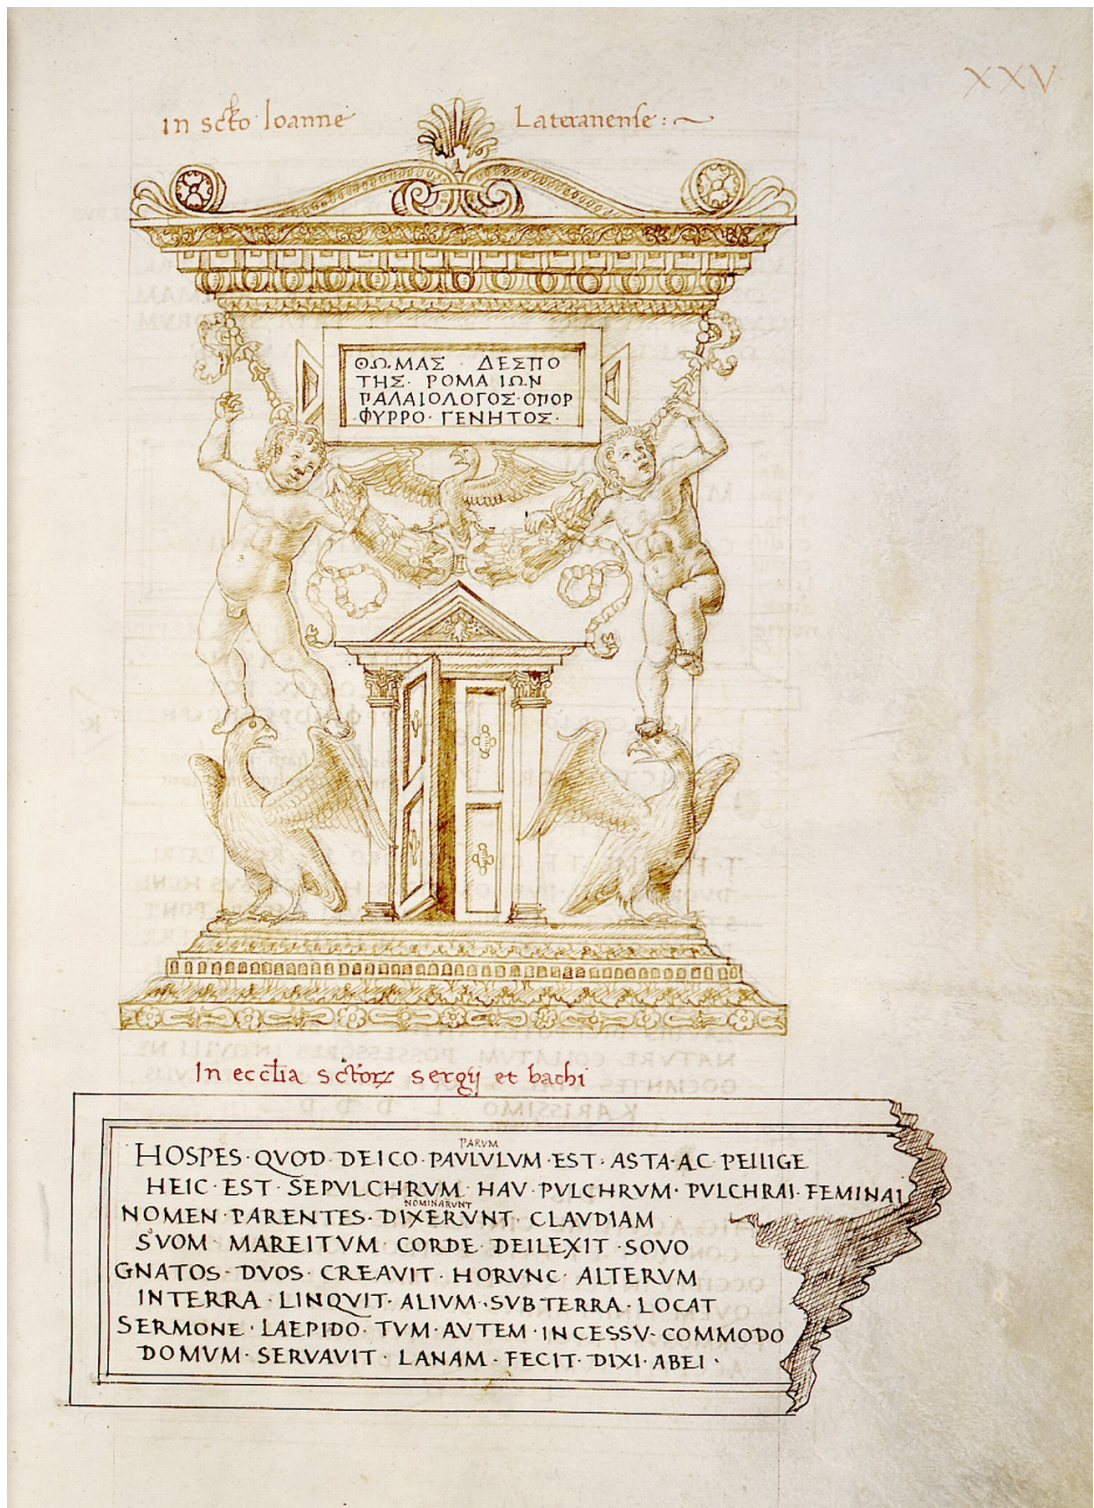 XXV
in scto Ioanne Lateranense :~
ΘΩ.ΜΑΣ · ΔΕΣΠΟ
ΤΗΣ· ΡΟΜΑ ΙΩΝ
ΠΑΛΑΙΟΛΟΓΟΣ·ΟΠΟΡ
·ΦΥΡΡΟ· ΓΕΝΗΤΟΣ·
In ecclia sctorꝝ sergij et bachi
PARVM
HOSPES·QVOD·DEICO·PAVLVLVM·EST·ASTA·AC·PELLIGE
HEIC·EST·SEPVLCHRVM·HAV·PVLCHRVM·PVLCHRAI·FEMINAI
NOMINARVNT
NOMEN·PARENTES·DIXERVNT·CLAVDIAM
SVOM·MAREITVM·CORDE·DEILEXIT·SOVO
GNATOS·DVOS·CREAVIT·HORVNC·ALTERVM
INTERRA·LINQVIT·ALIVM·SVBTERRA·LOCAT
SERMONE·LAEPIDO·TVM·AVTEM·INCESSV·COMMODO
DOMVM·SERVAVIT·LANAM·FECIT·DIXI·ABEI·